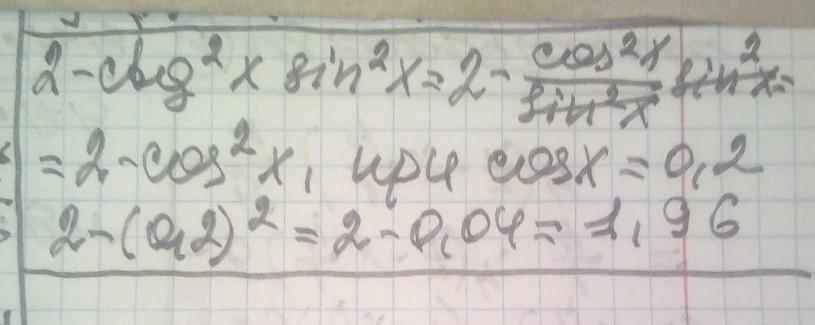 2-ctg²x sin²x=2-cos²x/sin²x sin²x=
=2-cos²x, при cosx=0,2
2-(0,2)²=2-0,04=1,96